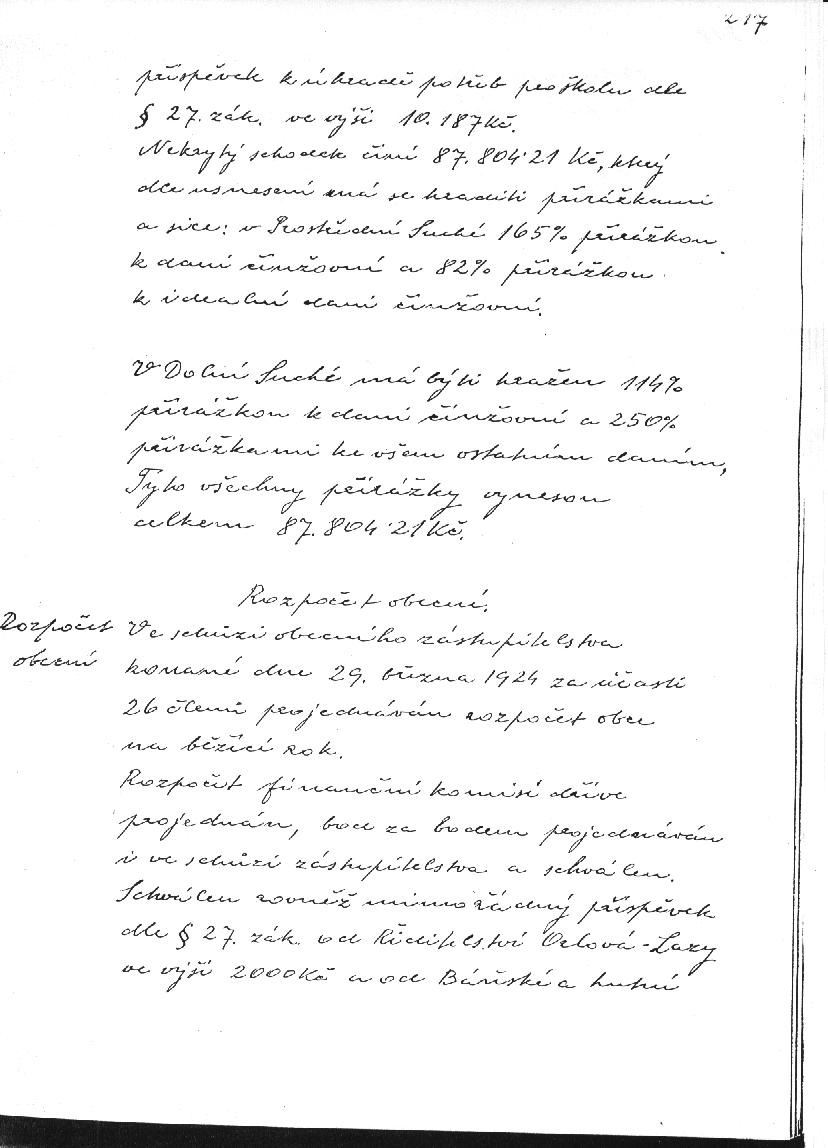 217
příspěvek k úhradě potřeb pro školu dle
§ 27. zák. ve výši 10.187 Kč.
Nekrytý schodek činí 87.804·21 Kč, který
dle usnesení má se hraditi přirážkami
a sice: v Prostřední Suché 165% přirážkou
k dani činžovní a 82% přirážkou
k idealní dani činžovní.
V Dolní Suché má býti hražen 114%
přirážkou k dani činžovní a 250%
přirážkami ke všem ostatním daním,
Tyto všechny přirážky vynesou
celkem 87.804·21 Kč.
Rozpočet obecní.
Rozpočet
obecní
Ve schůzi obecního zástupitelstva
konané dne 29. března 1924 za účasti
26 členů projednáván rozpočet obce
na běžící rok.
Rozpočet finanční komisí dříve
projednán, bod za bodem projednáván
i ve schůzi zástupitelstva a schválen.
Schválen rovněž mimořádný příspěvek
dle § 27. zák. od Ředitelství Orlová-Lazy
ve výši 2000 Kč a od Báňské a hutní